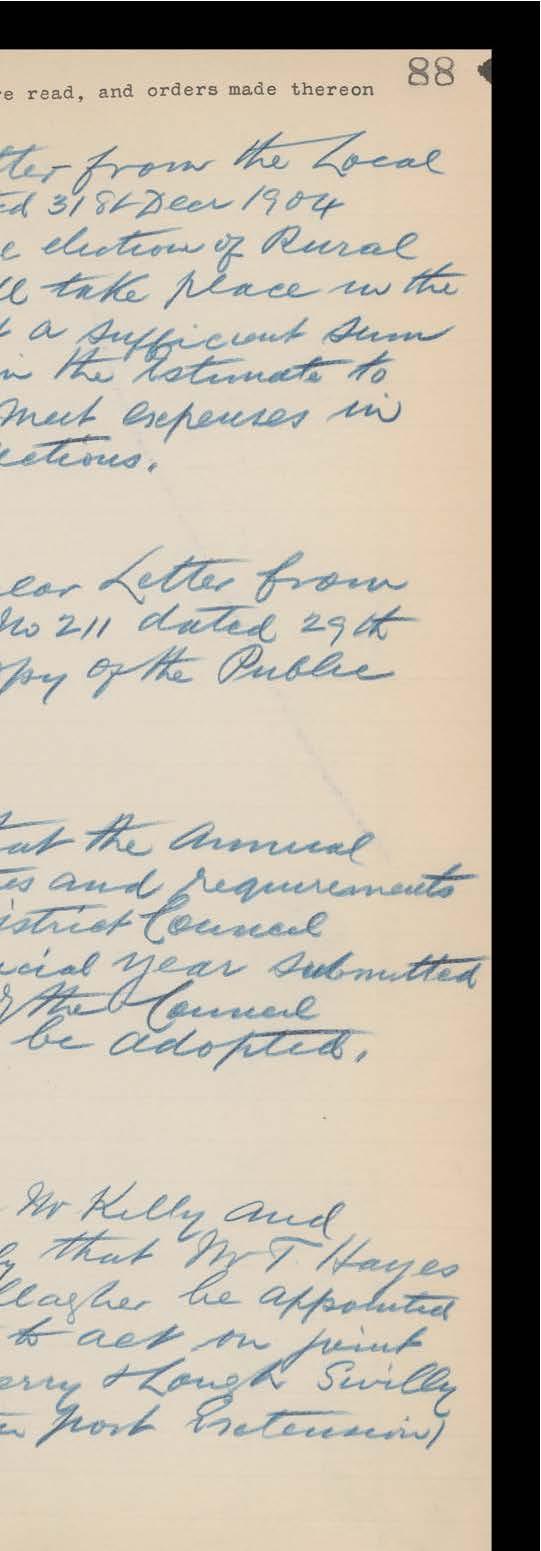 re read, and orders made thereon 88
tter from the Local
ed 31st Decr 1904
e election of Rural
ll take place in the
t a sufficient sum
in the Estimate to
meet expenses in
ections.
ular Letter from
No 211 dated 29th
opy of the Public
that the Annual
es and requirements
istrict Council
ncial year submitted
of the Council
be adopted.
Mr Kelly and
by that Mr T Hayes
llagher be appointed
to act on joint
erry & Lough Swilly
n port Extension)